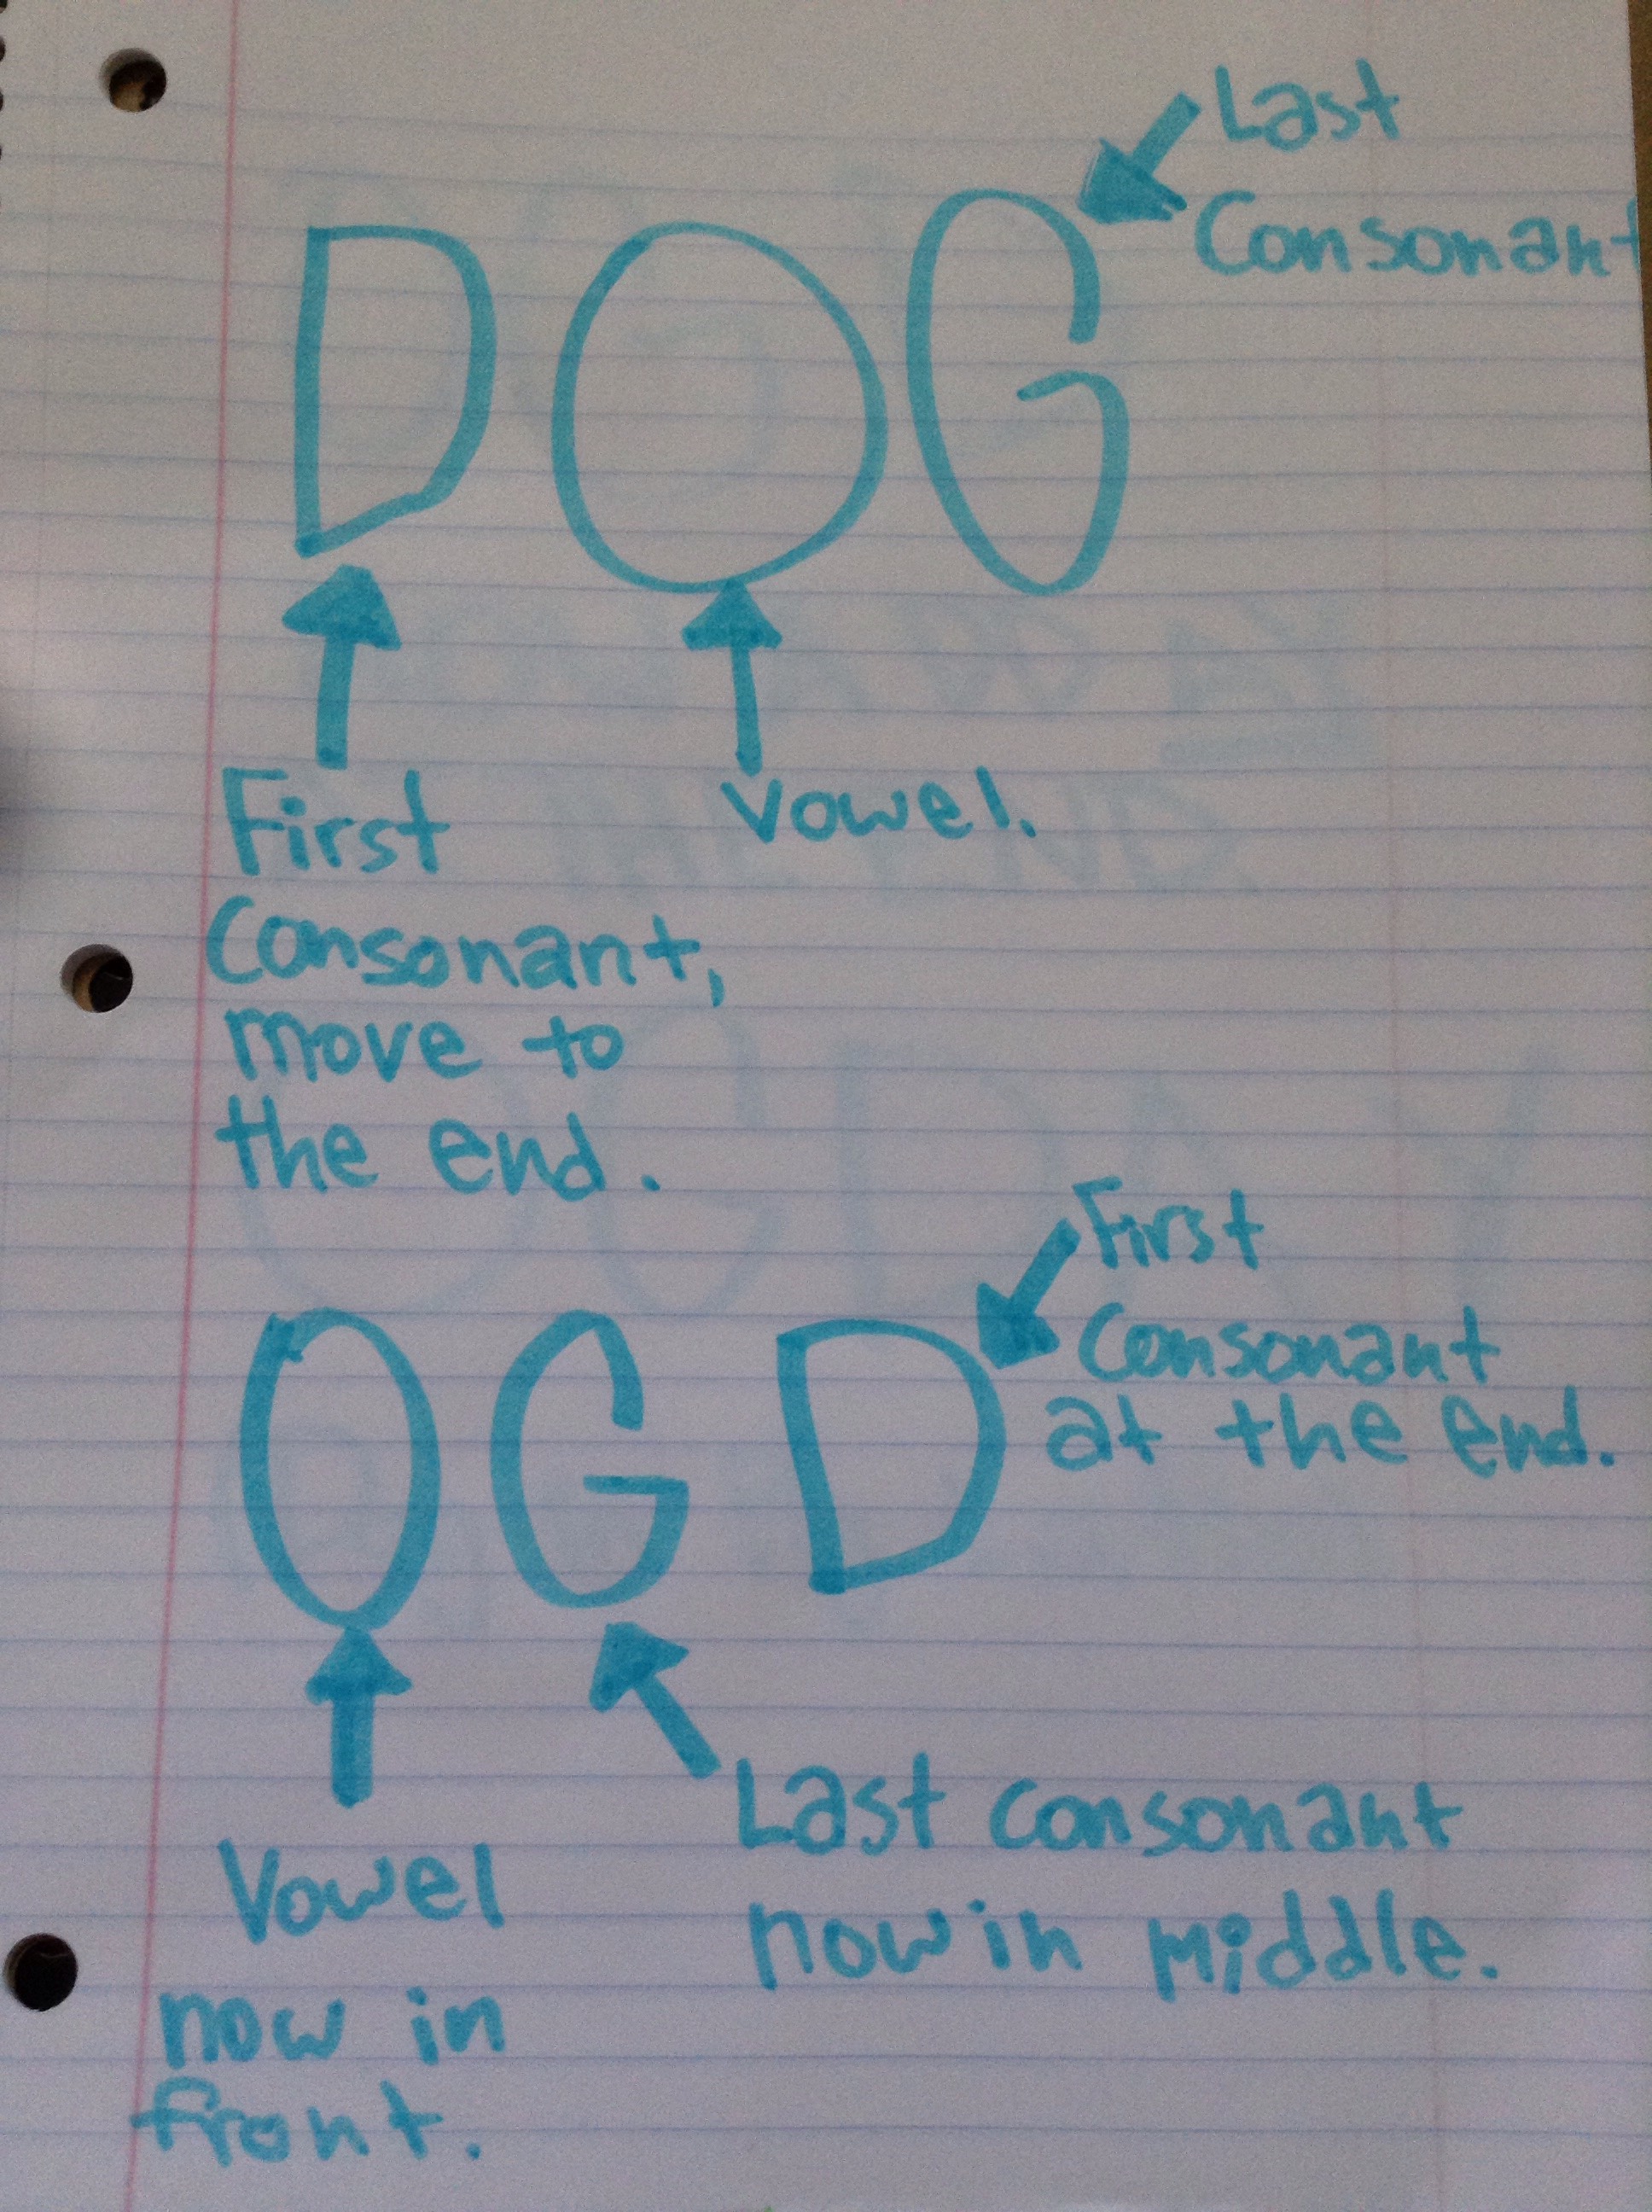 Last
Consonant
DOG
First
Consonant,
move to
the end.
Vowel.
First
Consonant
at the end.
OGD
Vowel
now in
front.
Last consonant
now in Middle.